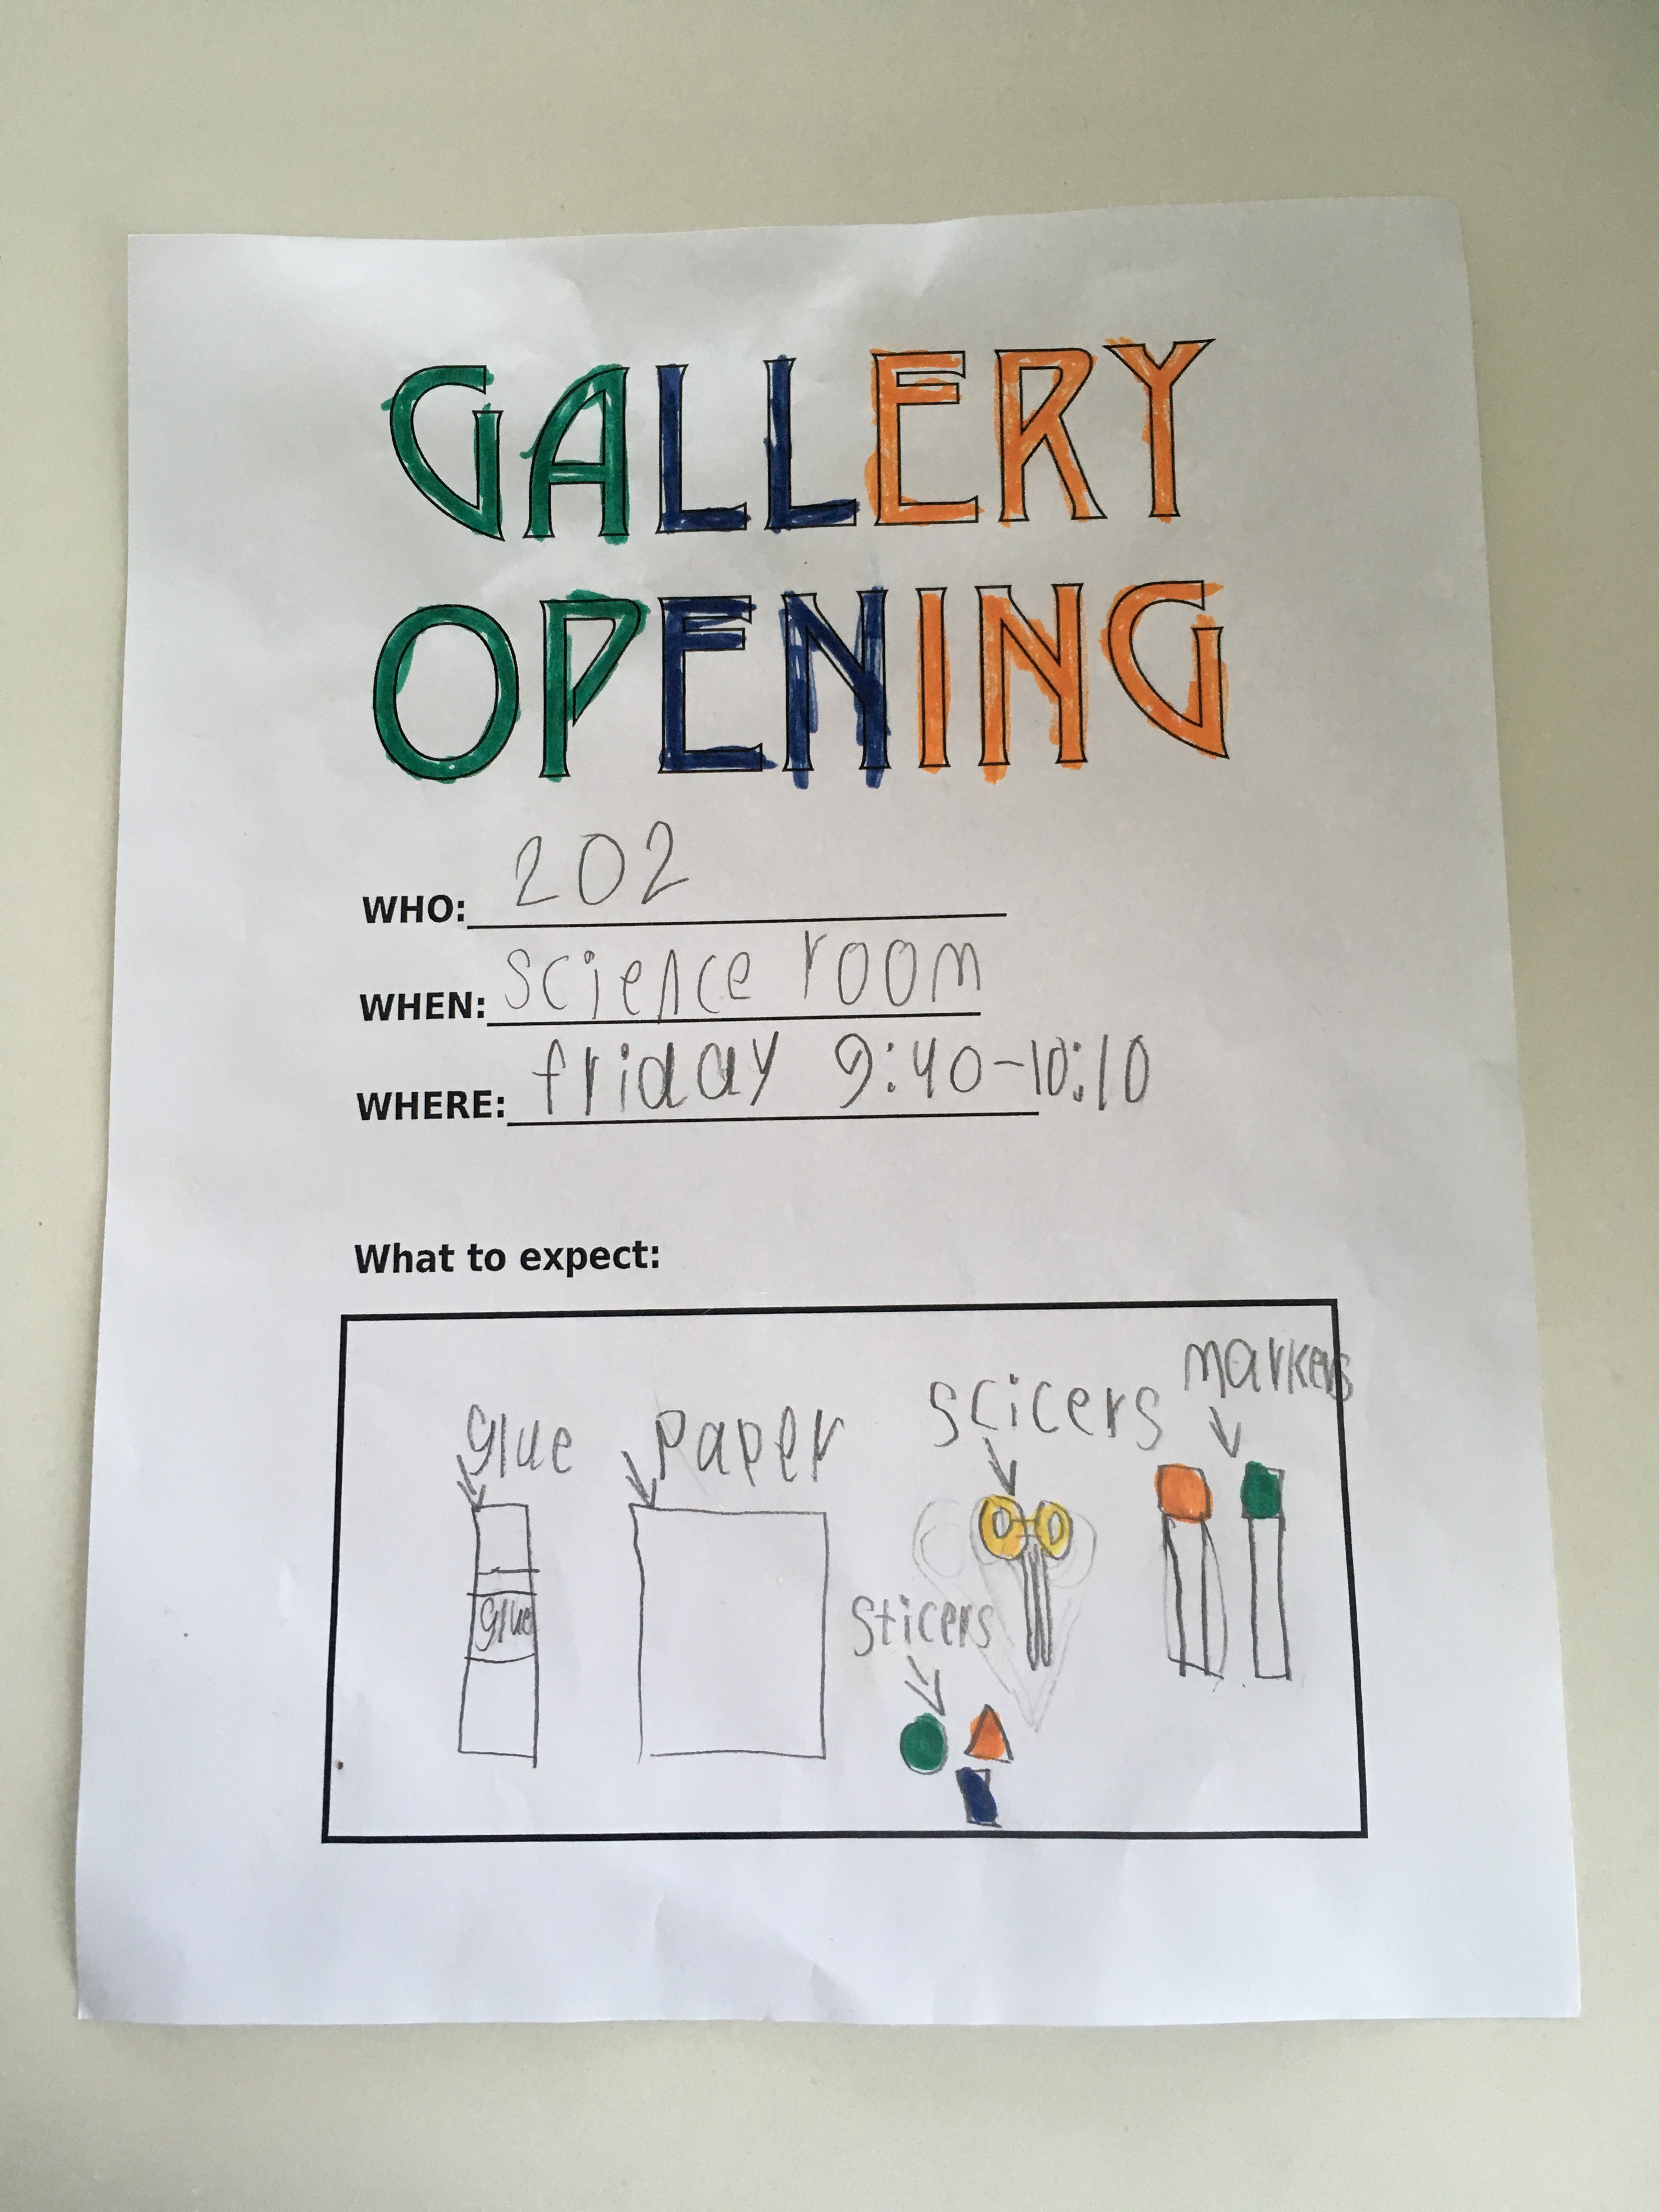 GALLERY
OPENING
WHO: 202
WHEN: science room
WHERE: friday 9:40-10:10
What to expect:
markers
scicers
glue
paper
glue
sticers